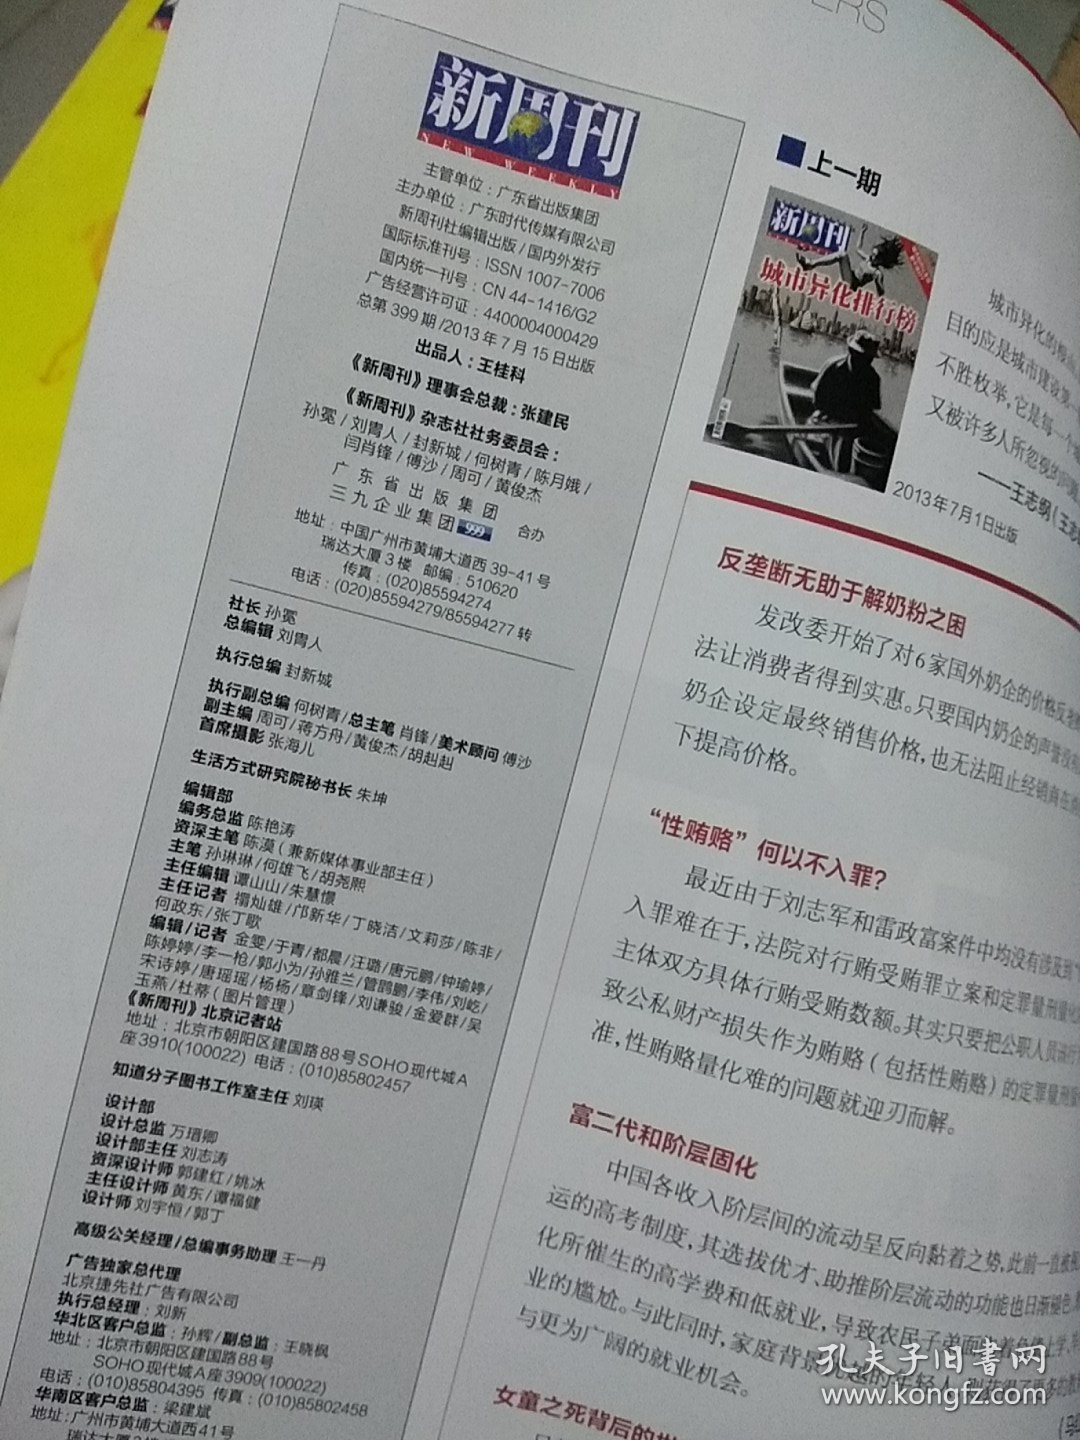 新周刊
NEW WEEKLY
主管单位：广东省出版集团
主办单位：广东时代传媒有限公司
新周刊社编辑出版/国内外发行
国际标准刊号：ISSN 1007-7006
国内统一刊号：CN 44-1416/G2
广告经营许可证：4400004000429
总第 399 期/2013 年 7 月 15 日出版
出品人：王桂科
《新周刊》理事会总裁：张建民
《新周刊》杂志社社务委员会：
孙冕/刘胄人/封新城/何树青/陈月娥/
闫肖锋/傅沙/周可/黄俊杰
广东省出版集团
三九企业集团 999 合办
地址：中国广州市黄埔大道西 39-41 号
瑞达大厦 3 楼 邮编：510620
传真：(020)85594274
电话：(020)85594279/85594277 转
社长 孙冕
总编辑 刘胄人
执行总编 封新城
执行副总编 何树青/总主笔 肖锋/美术顾问 傅沙
副主编 周可/蒋方舟/黄俊杰/胡赳赳
首席摄影 张海儿
生活方式研究院秘书长 朱坤
编辑部
编务总监 陈艳涛
资深主笔 陈漠（兼新媒体事业部主任）
主笔 孙琳琳/何雄飞/胡尧熙
主任编辑 谭山山/朱慧憬
主任记者 禤灿雄/邝新华/丁晓洁/文莉莎/陈非/
何政东/张丁歌
编辑/记者 金雯/于青/都晨/汪璐/唐元鹏/钟瑜婷/
陈婷婷/李一枪/郭小为/孙雅兰/管鹍鹏/李伟/刘屹/
宋诗婷/唐瑶瑶/杨杨/章剑锋/刘谦骏/金爱群/吴
玉燕/杜蒂(图片管理)
《新周刊》北京记者站
地址：北京市朝阳区建国路 88 号 SOHO 现代城 A
座 3910(100022) 电话：(010)85802457
知道分子图书工作室主任 刘瑛
设计部
设计总监 万瑨卿
设计部主任 刘志涛
资深设计师 郭建红/姚冰
主任设计师 黄东/谭福健
设计师 刘宇恒/郭丁
高级公关经理/总编事务助理 王一丹
广告独家总代理
北京捷先社广告有限公司
执行总经理：刘新
华北区客户总监：孙辉/副总监：王晓枫
地址：北京市朝阳区建国路88号
SOHO 现代城 A 座 3909(100022)
电话：(010)85804395 传真：(010)85802458
华南区客户总监：梁建斌
地址：广州市黄埔大道西41号
瑞达大厦
ERS
上一期
新周刊
城市异化排行榜
2013年7月1日出版
城市异化的
目的应是城市建设第一
不胜枚举，它是每一个
又被许多人所忽视的问题
——王志纲（王志
反垄断无助于解奶粉之困
发改委开始了对6家国外奶企的价格反垄
法让消费者得到实惠。只要国内奶企的声誉没有
奶企设定最终销售价格，也无法阻止经销商在
下提高价格。
“性贿赂”何以不入罪？
最近由于刘志军和雷政富案件中均没有涉及到
入罪难在于，法院对行贿受贿罪立案和定罪量刑
主体双方具体行贿受贿数额。其实只要把公职人员
致公私财产损失作为贿赂（包括性贿赂）的定罪量刑
准，性贿赂量化难的问题就迎刃而解。
富二代和阶层固化
中国各收入阶层间的流动呈反向黏着之势，此前一直被
运的高考制度，其选拔优才、助推阶层流动的功能也日渐褪色，
化所催生的高学费和低就业，导致农民子弟面临着负债上学、
业的尴尬。与此同时，家庭背景优越的年轻人
与更为广阔的就业机会。
女童之死背后的
孔夫子旧书网
www.kongfz.com